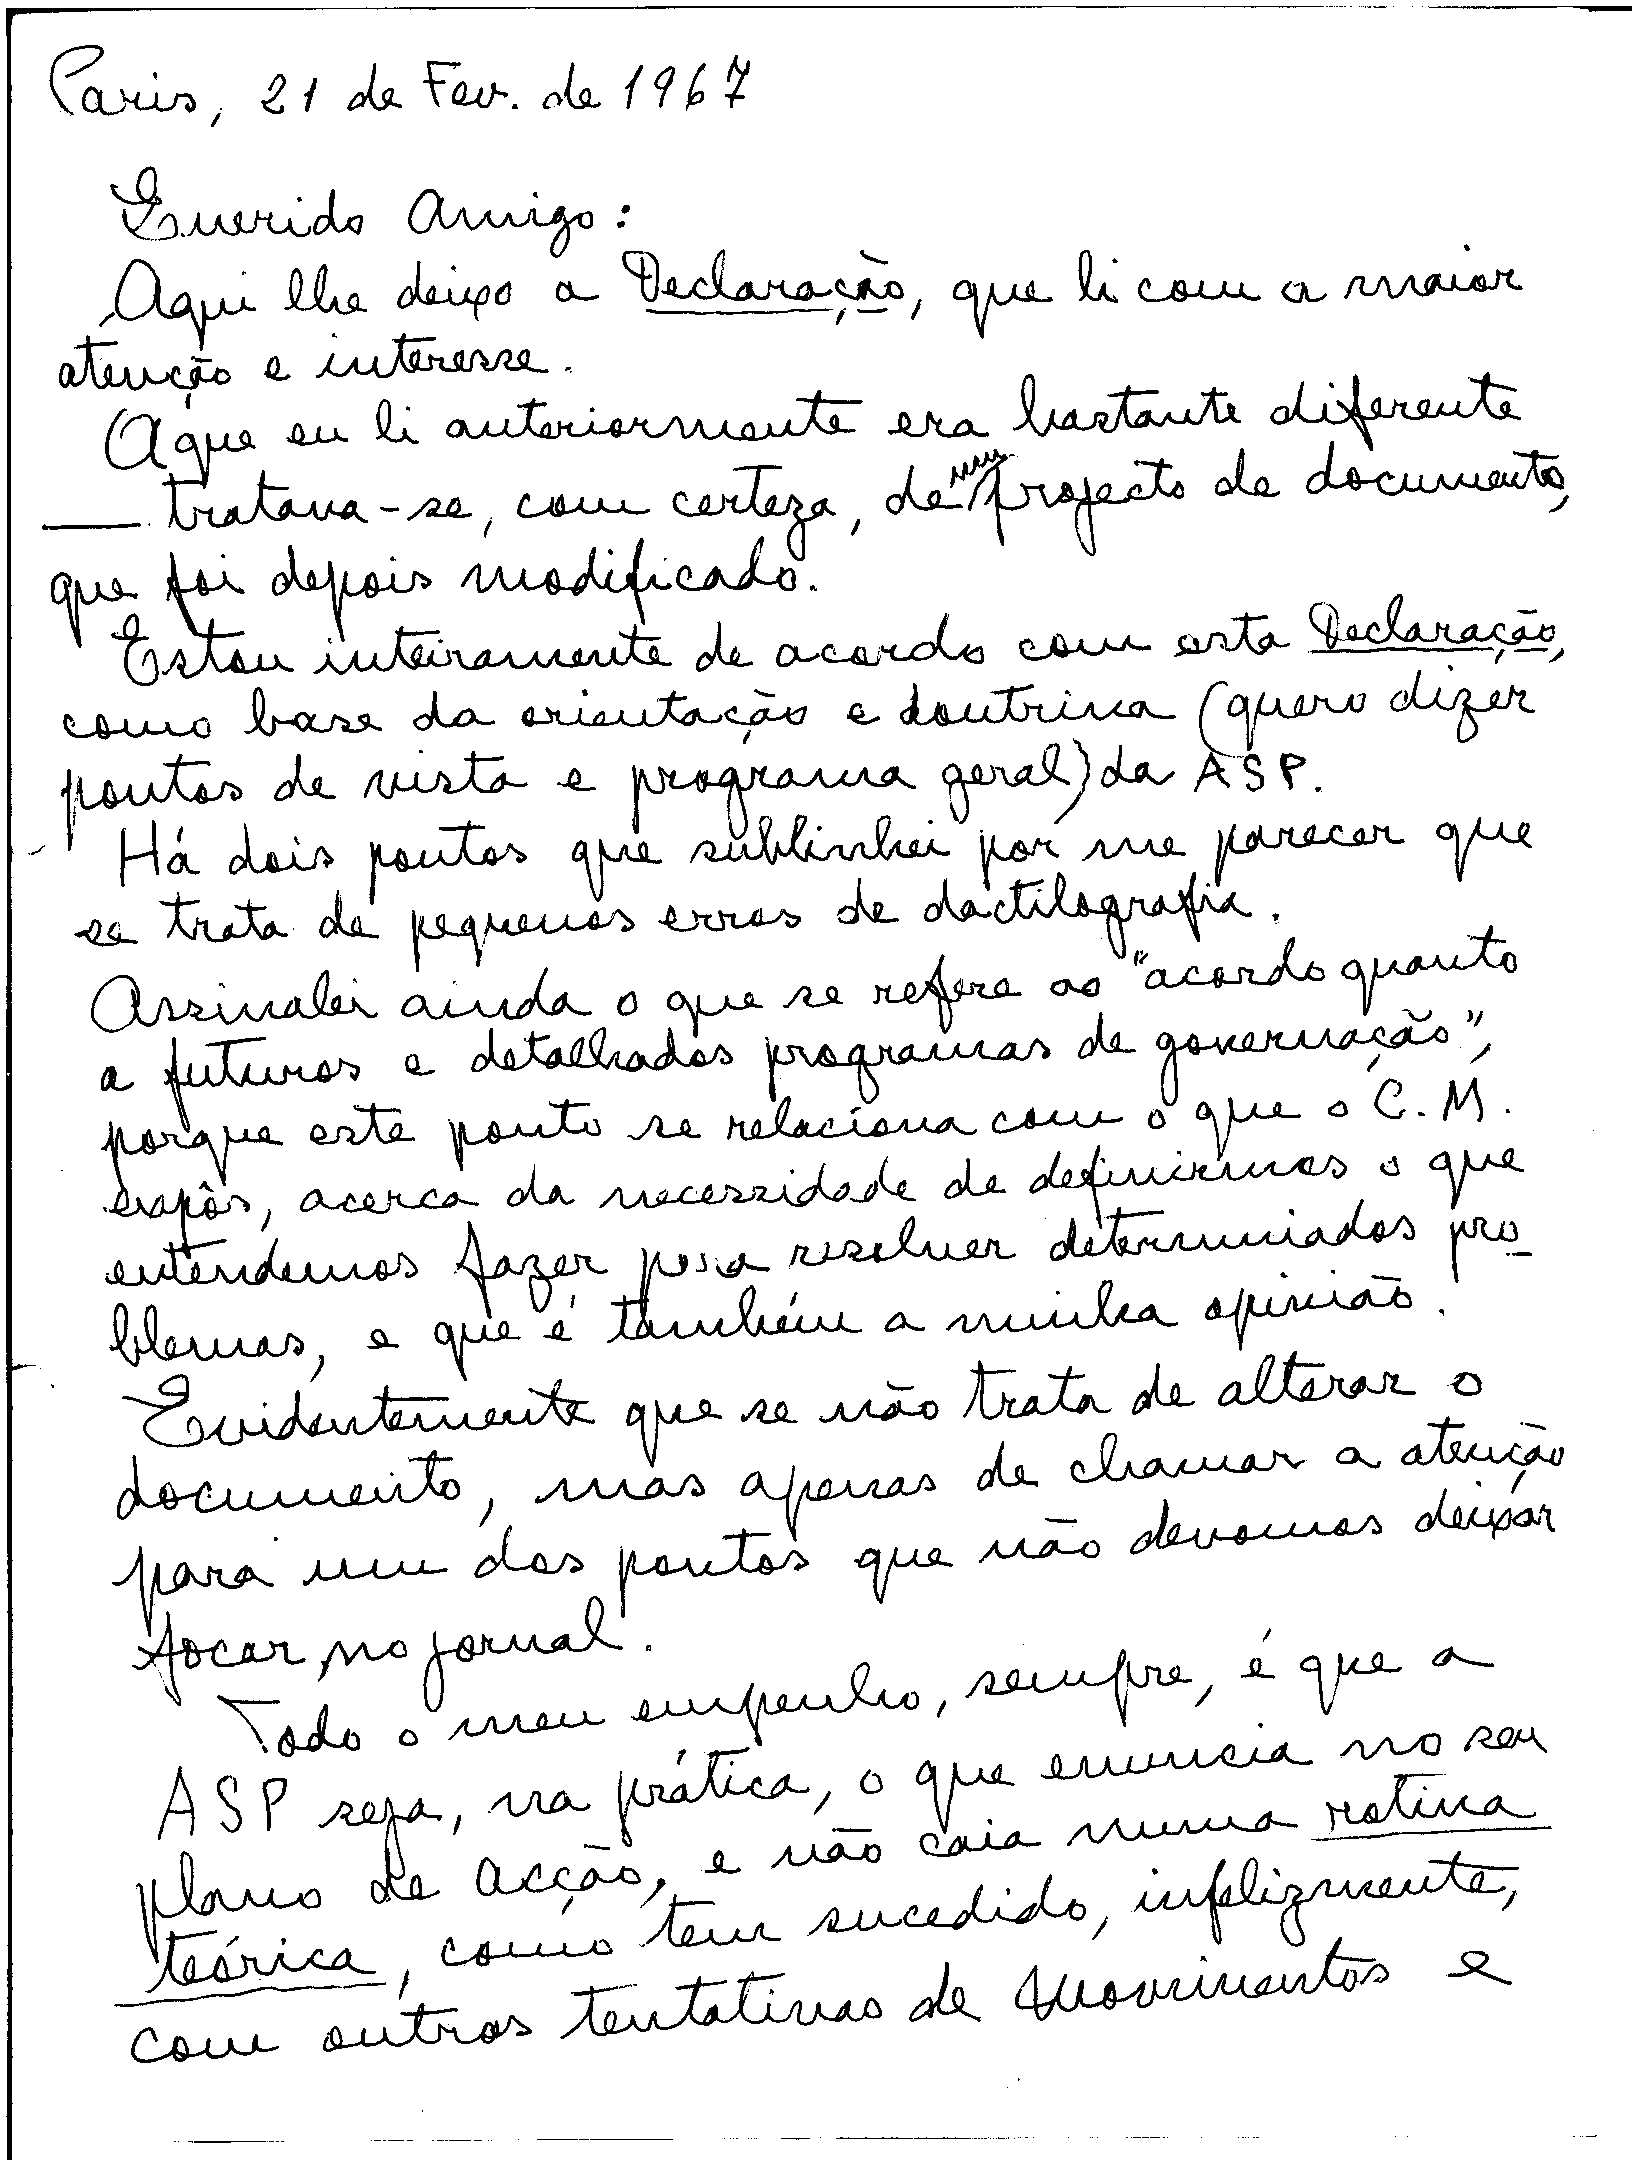 Paris, 21 de Fev. de 1967
Querido Amigo:
Aqui lhe deixo a Declaração, que li com a maior
atenção e interesse.
A que eu li anteriormente era bastante diferente
— tratava-se, com certeza, de um projecto de documento,
que foi depois modificado.
Estou inteiramente de acordo com esta Declaração,
como base da orientação e doutrina (quero dizer
pontos de vista e programa geral) da ASP.
Há dois pontos que sublinhei por me parecer que
se trata de pequenos erros de dactilografia.
Assinalei ainda o que se refere ao "acordo quanto
a futuros e detalhados programas de governação",
porque este ponto se relaciona com o que o C. M.
expôs, acerca da necessidade de definirmos o que
entendemos fazer para resolver determinados pro-
blemas, e que é também a minha opinião.
Evidentemente que se não trata de alterar o
documento, mas apenas de chamar a atenção
para um dos pontos que não devamos deixar
focar, no jornal.
Todo o meu empenho, sempre, é que a
ASP seja, na prática, o que enuncia no seu
plano de acção, e não caia numa rotina
teórica, como tem sucedido, infelizmente,
com outras tentativas de Movimentos e